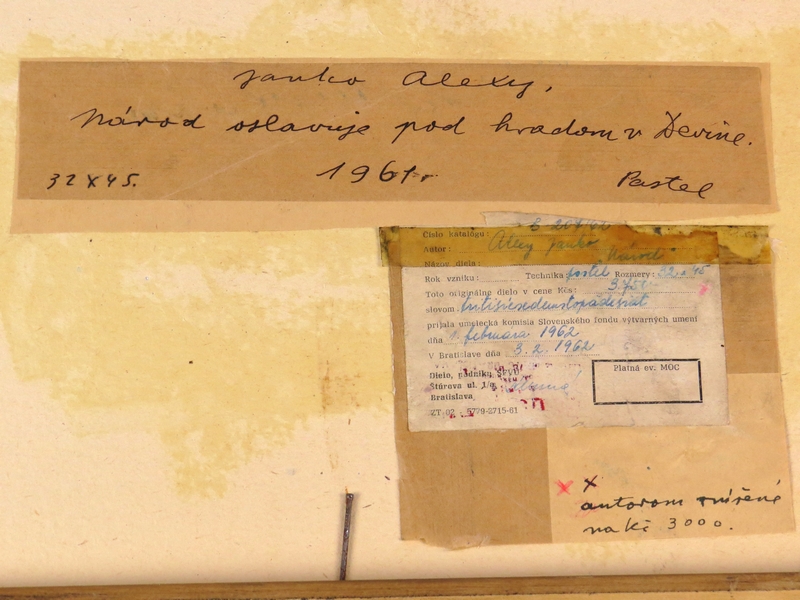 Janko Alexy,
Národ oslavuje pod hradom v Devíne.
1961
32 x 45. Pastel
Číslo katalógu:
Autor: Alexy Janko
Názov diela: Národ
Rok vzniku: Technika pastel Rozmery: 32 x 45
Toto originálne dielo v cene Kčs: 3.750
slovom tritisícsedemstopädesiat
prijala umelecká komisia Slovenského fondu výtvarných umení
dňa 1. februára 1962
V Bratislave dňa 3. 2. 1962
Dielo, podnik SFVU
Štúrova ul. 1/a,
Bratislava
Platná ev. MOC
ZT 02 5779-2715-61
x x
autorom znížené
na Kč 3000.